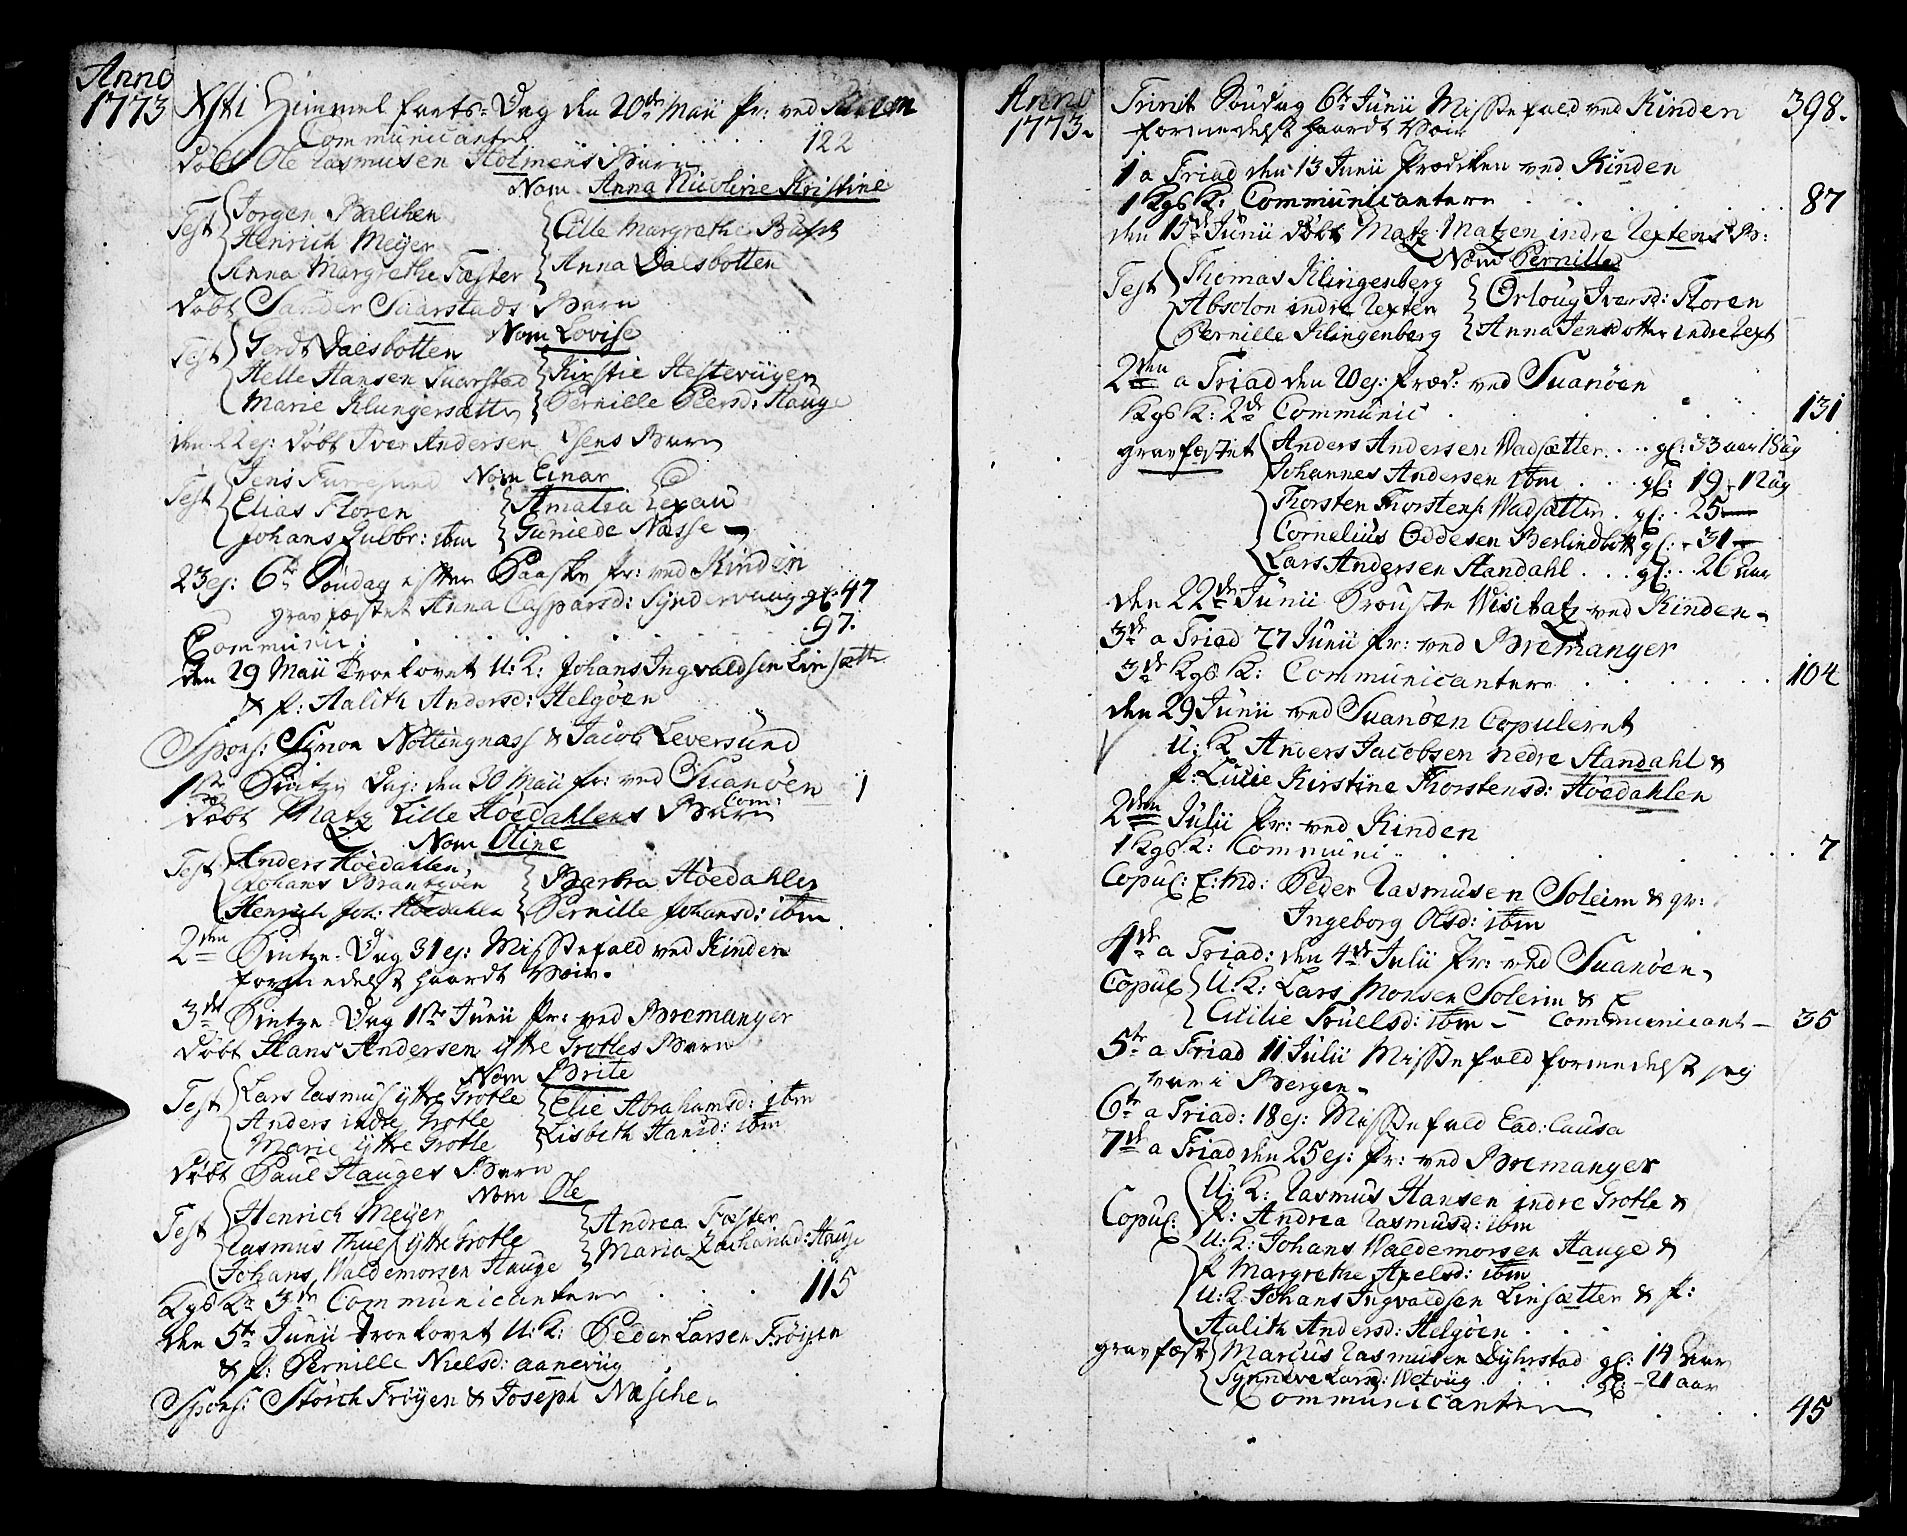 Anno
1773
Xsti Himmelfarts-Dag den 20de Maii Pr: ved
Communicanter . . . 122
Døbt Ole Rasmusen Holmens Barn
Nom Anna Nicoline Kristine
Test Jørgen Balchen
Henrich Meyer
Anna Margrethe Fæster
Cille Margrethe
Anna Dalsbotten
Døbt Sander Saarstads Barn
Nom Lovise
Test Gerdt Dalsbotten
Helle Hansen Suarstad
Marie Klungersætter
Kirstie Hestevügen
Pernille Peersd: Hauge
den 22 ej: Døbt Iver Andersen Barn
Nom Einar
Test Jens Furresund
Elias Floren
Johans ibm
Amalia Lexau
Guniede Næsse
23 ej: 6te Søndag efter Paaske Pr: ved Kinden
gravfæstet Anna Caspersd: Syndervaag gl: 47
Communic: . . . 97.
Den 29 Maii Troelovet U: K: Johans Ingvaldsen Linsæth
& P: Aalith Andersd: Helgøen
Spons: Simon Nottingnæss & Jacob Leversund
1ste Pintze Dag: den 30 Maii Pr: ved Suanøen 1
Com:
Døbt Matz Lille Høedahlens Barn
Nom Oline
Test Anders Høedahlen
Johans
Henrich Joh: Høedahlen
Barbra Høedahlen
Pernille Johansd: ibm
2den Pintze-Dag 31 ej: Missefald ved Kinden
formedelst haardt Veir.
3de Pintze-Dag 1ste Junii Pr: ved Bremanger
Døbt Hans Andersen ytre Grotles Barn
Nom Brite
Test Lars Rasmus ytre Grotle
Anders indre Grotle
Marie ytre Grotle
Elie Abrahamsd: ibm
Lisbeth Hansd: ibm
Døbt Paul Hauges Barn
Nom Ole
Test Henrich Meyer
Rasmus Thues ytre Grotle
Johans Waldemorsen Hauge
Andrea Fæster
Maria Zachariad: Hauge
Kgs K: 3de Communicantere . . . 115
Den 5te Junii Troelovet U: K: Peder Larsen Frøyen
& P: Pernille Nielsd: aanevüg
Spons: Storch Friyen & Joseph Næsche
Anno
1773.
398.
Trinit Søndag 6te Junii Missefald ved Kinden
formedelst haardt Veir
1 a Triad den 13 Junii Prædiken ved Kinden
1 Kgs K: Communicantere . . . 87
den 15de Junii Døbt Matz Matzen indre Rextens B:
Nom Pernille
Test Thomas Klingenberg
Absolon indre Rexten
Pernille Klingenberg
Orloug Iversd: Floren
Anna Jensdotter indre Rext
2den a Triad den 20 ej: Præd: ved Suanøen
Kgs K: 2de Communic . . . 131
gravfæstet Anders Andersen Vadsætter . . gl: 33 aar 18 ug
Johannes Andersen ibm . . . gl: 19 - 12 ug
Thorsten Thorstens: Vadsætter . gl: . 25 —
Cornelius Oddesen Berlindbott gl: - 31 —
Lars Andersen Standahl . . . gl: . 26 aar
den 22de Junii Prouste Visitatz ved Kinden
3de a Triad 27 Junii Pr: ved Bremanger
3de Kgs K: Communicantere . . . 104
den 29 Junii ved Suanøen Copuleret
U: K Anders Jacobsen nedre Standahl &
P: Lucie Kirstine Thorstensd: Høedahlen
2den Julii Pr: ved Kinden
1 Kgs K: Communi . . . 7
Copul: E: Md: Peder Rasmusen Soleim & qv:
Ingeborg Olsd: ibm
4de a Triad: den 4de Julii Pr: ved Suanøen
Copul U: K: Lars Monsen Soleim & P
Cicilie Truelsd: ibm — Communicant — 35
5te a Triad 11 Julii Missefald formedelst jeg
var i Bergen
6te a Triad: 18 ej: Missefald Ead: Causa
7de a Triad den 25 ej: Pr: ved Bremanger
Copul: U: K: Rasmus Hansen indre Grotle &
P: Andrea Rasmusd: ibm
U: K: Johans Waldemorsen Hauge &
P Margrethe Axelsd: ibm
U: K Johans Ingvaldsen Linsætter & P:
Aalith Andersd: Helgøen
gravfæst Marcus Rasmusen Dyhrstad gl: 14 aar
Synneve Larsd: Vetvüg . . gl: - 21 aar
Communicanter . . . 45